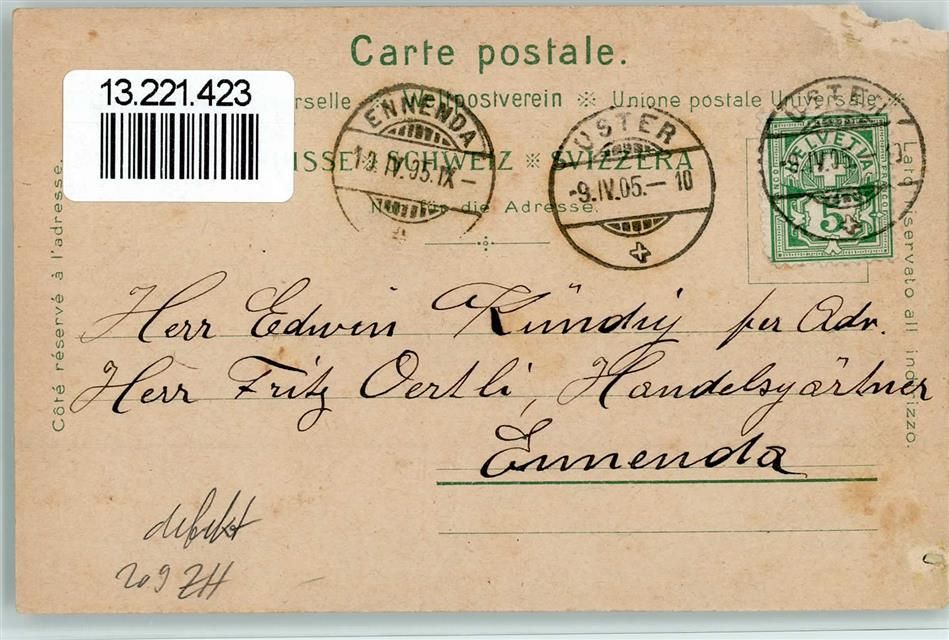 Carte postale.
13.221.423
rselle ※ Weltpostverein ※ Unione postale Universale ※
ISSE ※ SCHWEIZ ※ SVIZZERA
für die Adresse.
ENNENDA
10. IV. 05. IX –
USTER
-9. IV. 05. – 10
USTER
HELVETIA
5
Côté réservé à l'adresse.
Lato riservato all indirizzo.
Herr Edwin Kündig per Adr.
Herr Fritz Oertli, Handelsgärtner
Ennenda
defekt
209 ZH